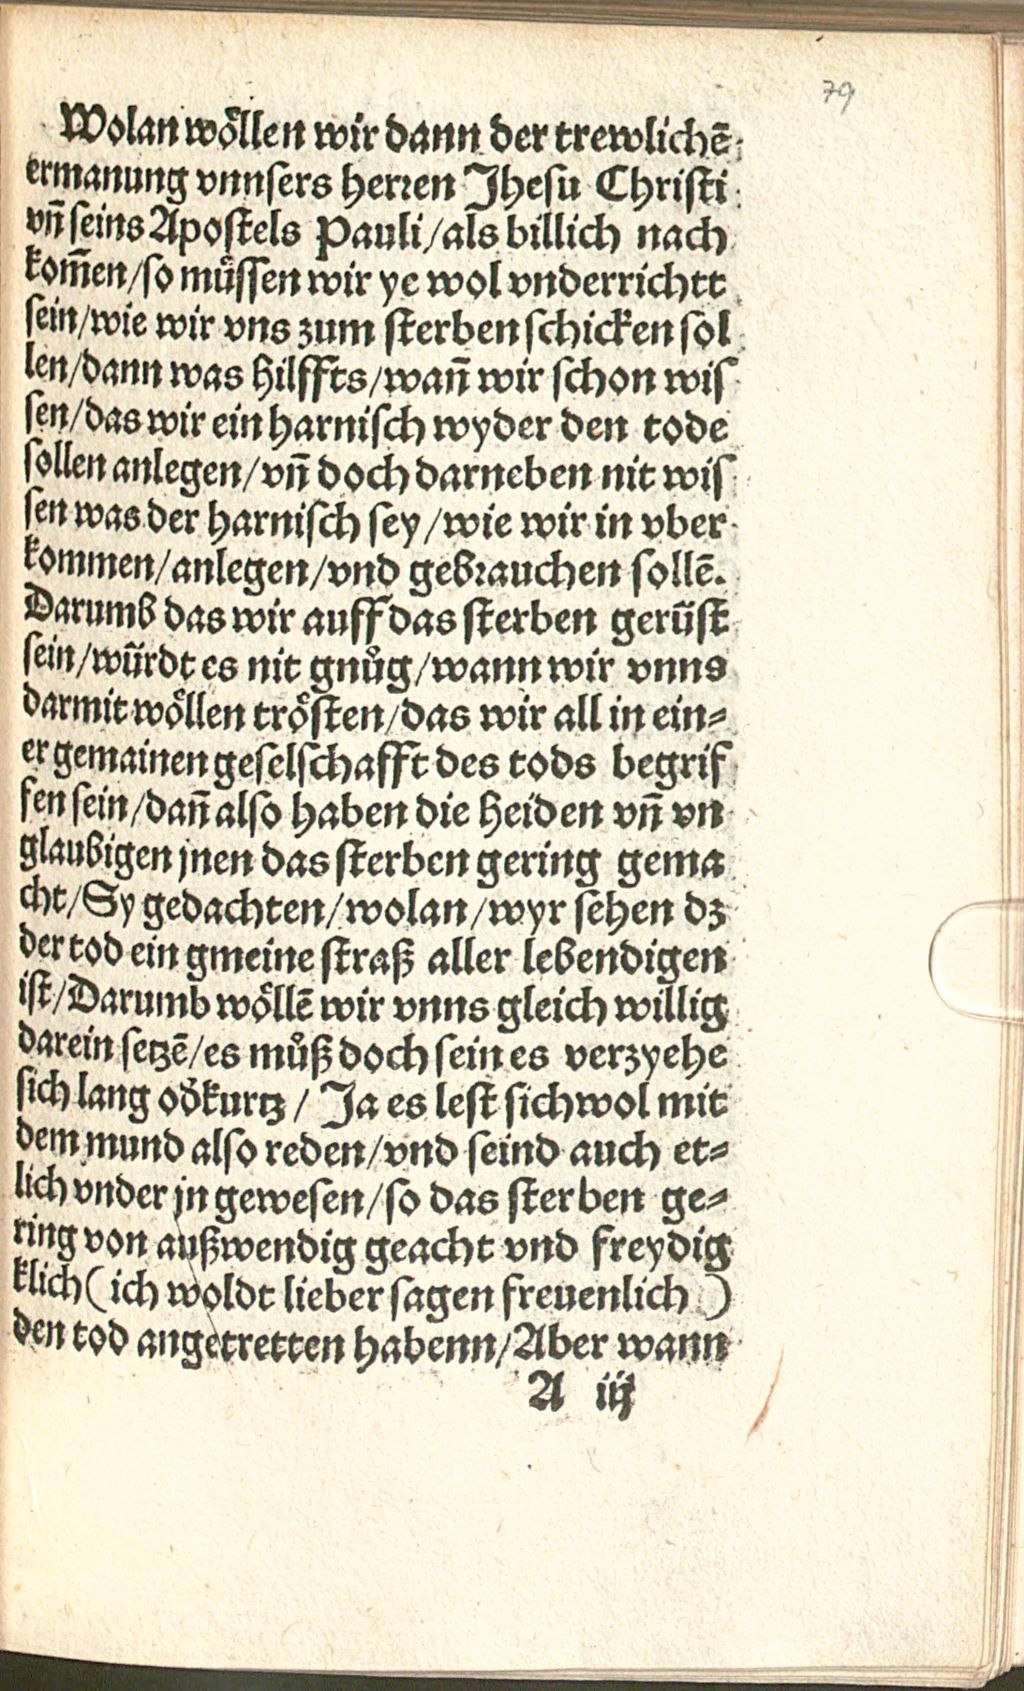 79
Wolan wöllen wir dann der trewlichē
ermanung vnnsers herren Jhesu Christi
vñ seins Apostels Pauli/als billich nach
kom̃en/so müssen wir ye wol vnderrichtt
sein/wie wir vns zum sterben schicken sol
len/dann was hilffts/wañ wir schon wis
sen/das wir ein harnisch wyder den tode
sollen anlegen/vñ doch darneben nit wis
sen was der harnisch sey/wie wir in vber
kommen/anlegen/vnd gebrauchen sollē.
Darumb das wir auff das sterben gerüst
sein/würdt es nit gnůg/wann wir vnns
darmit wöllen trösten/das wir all in ein⸗
er gemainen geselschafft des tods begrif
fen sein/dañ also haben die Heiden vñ vn
glaubigen jnen das sterben gering gema
cht/Sy gedachten/wolan/wyr sehen dz
der tod ein gmeine straß aller lebendigen
ist/Darumb wöllē wir vnns gleich willig
darein setzē/es můß doch sein es verzyehe
sich lang oď kurtz/ Ja es lest sich wol mit
dem mund also reden/vnd seind auch et⸗
lich vnder jn gewesen/so das sterben ge⸗
ring von außwendig geacht vnd freydig
klich (ich woldt lieber sagen freuenlich )
den tod angetretten habenn/Aber wann
A iij